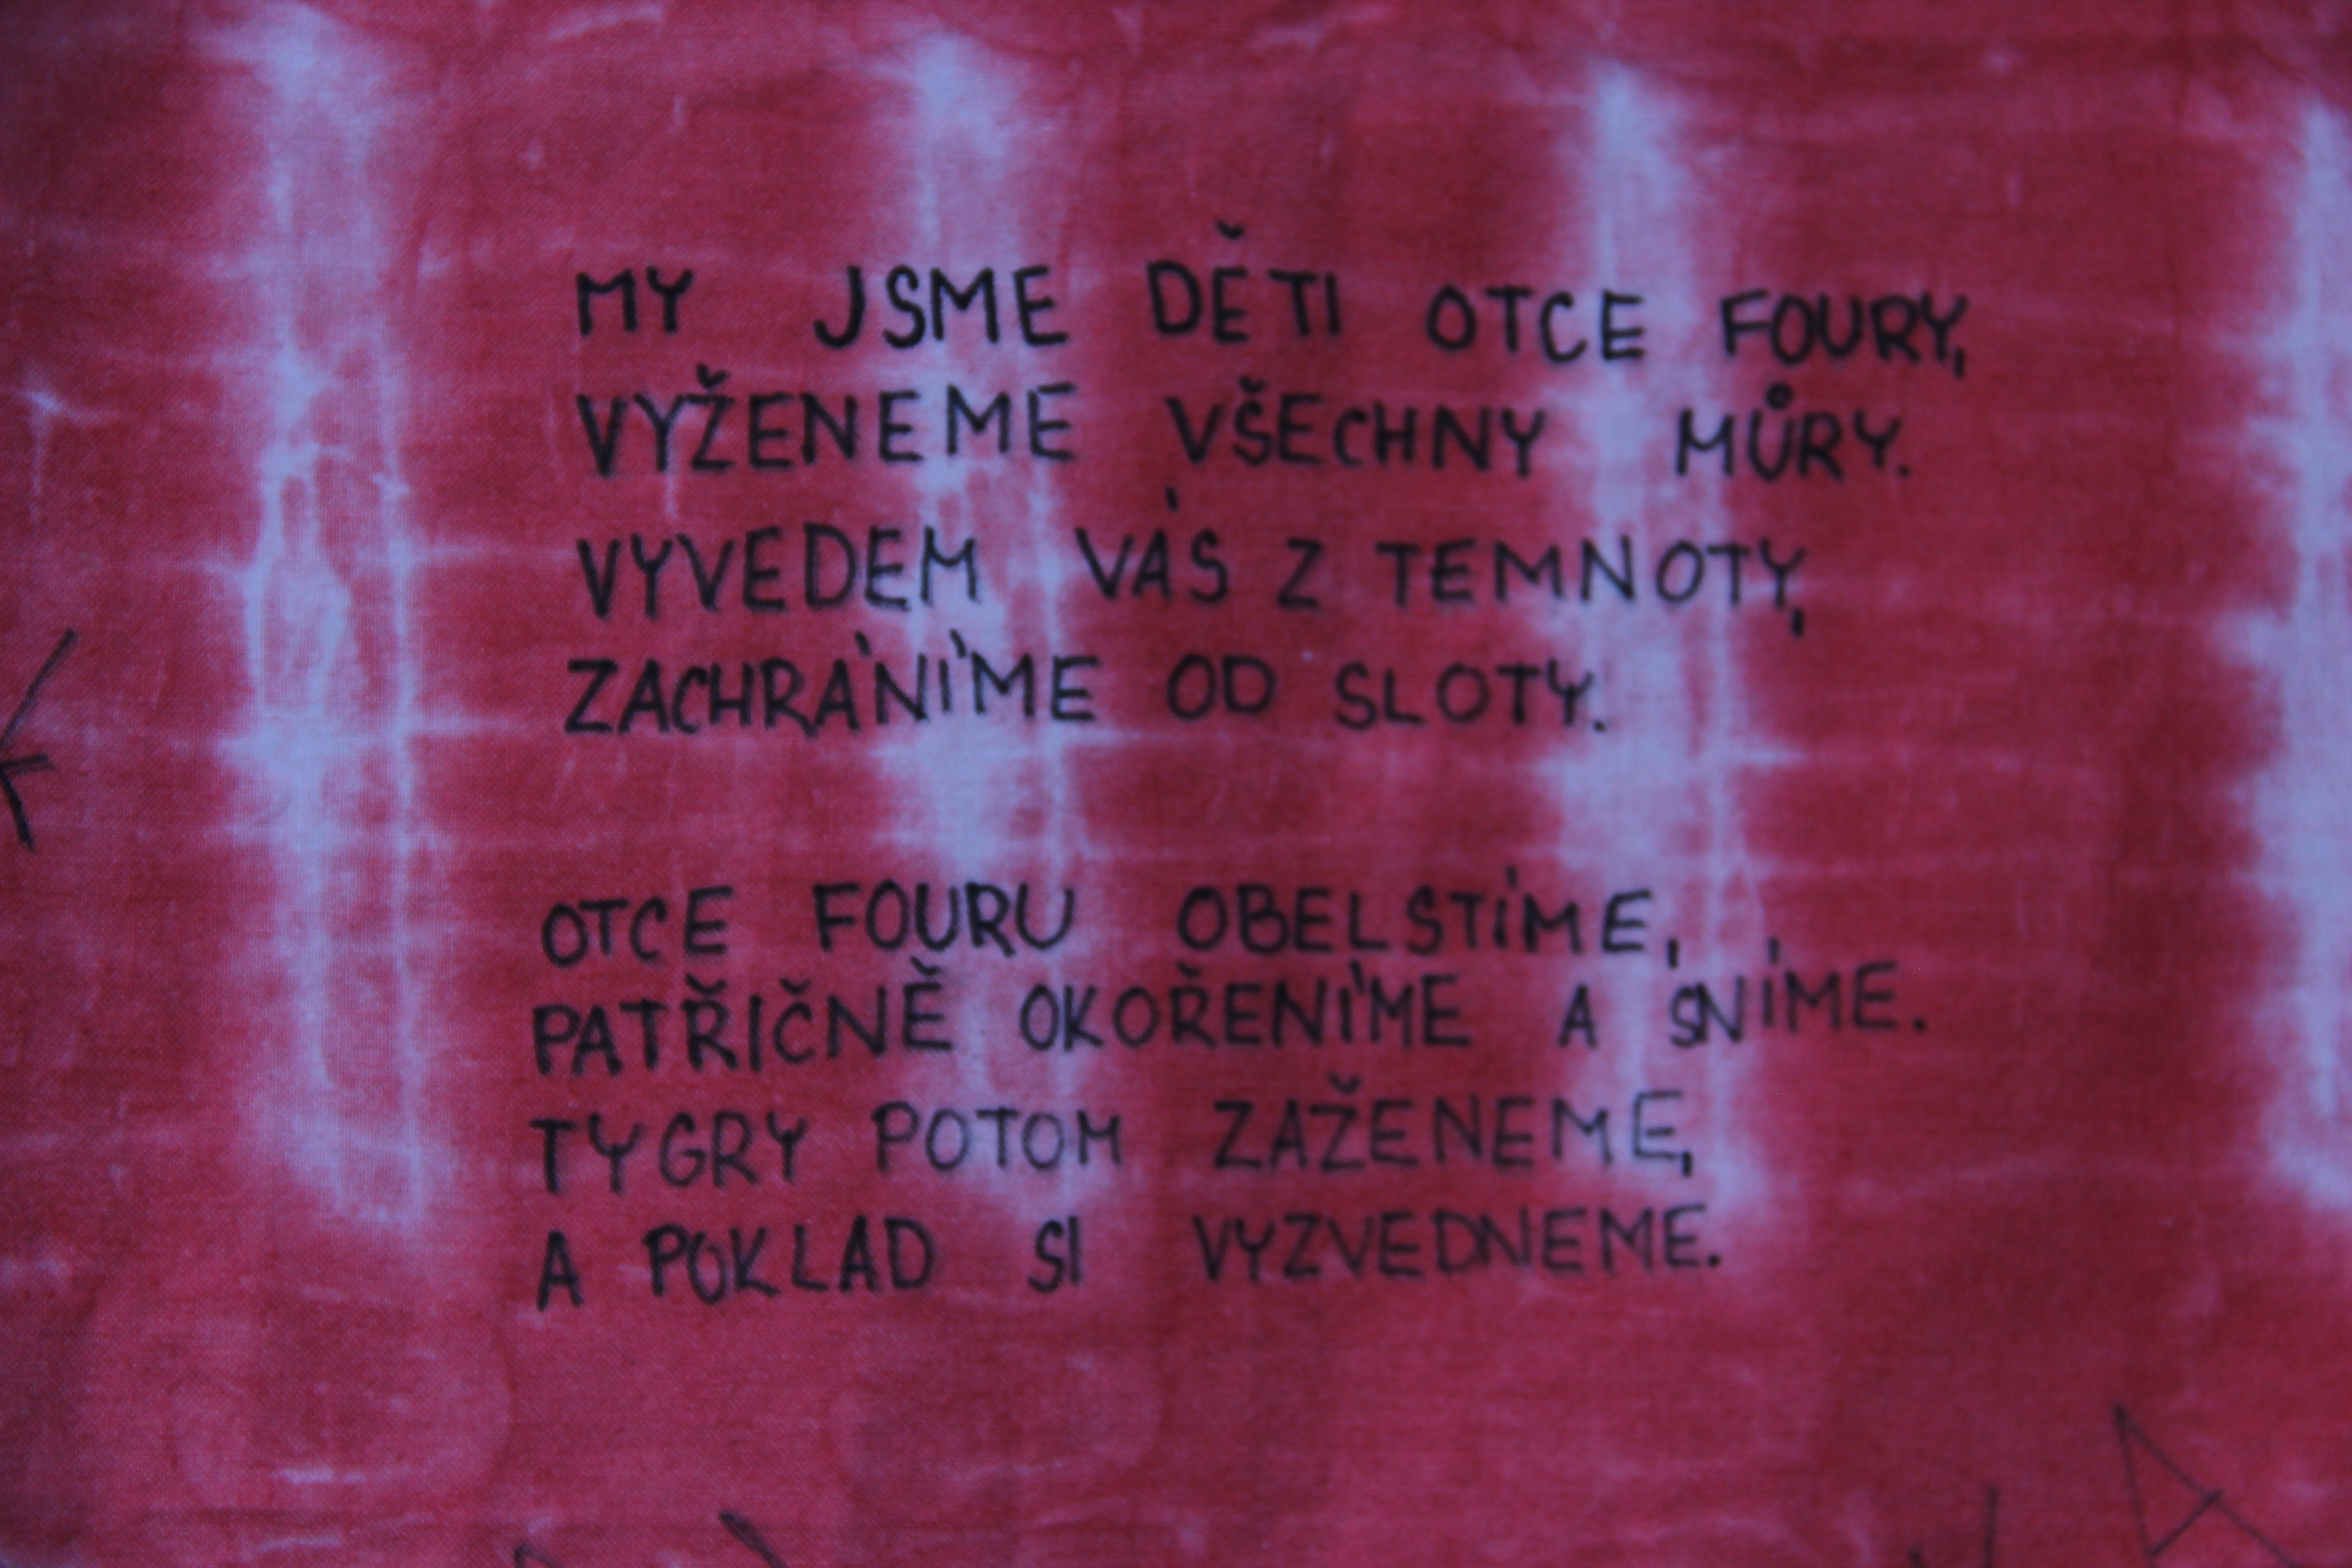 MY JSME DĚTI OTCE FOURY,
VYŽENEME VŠECHNY MŮRY.
VYVEDEM VÁS Z TEMNOTY,
ZACHRÁNÍME OD SLOTY.
OTCE FOURU OBELSTÍME,
PATŘIČNĚ OKOŘENÍME A SNÍME.
TYGRY POTOM ZAŽENEME,
A POKLAD SI VYZVEDNEME.